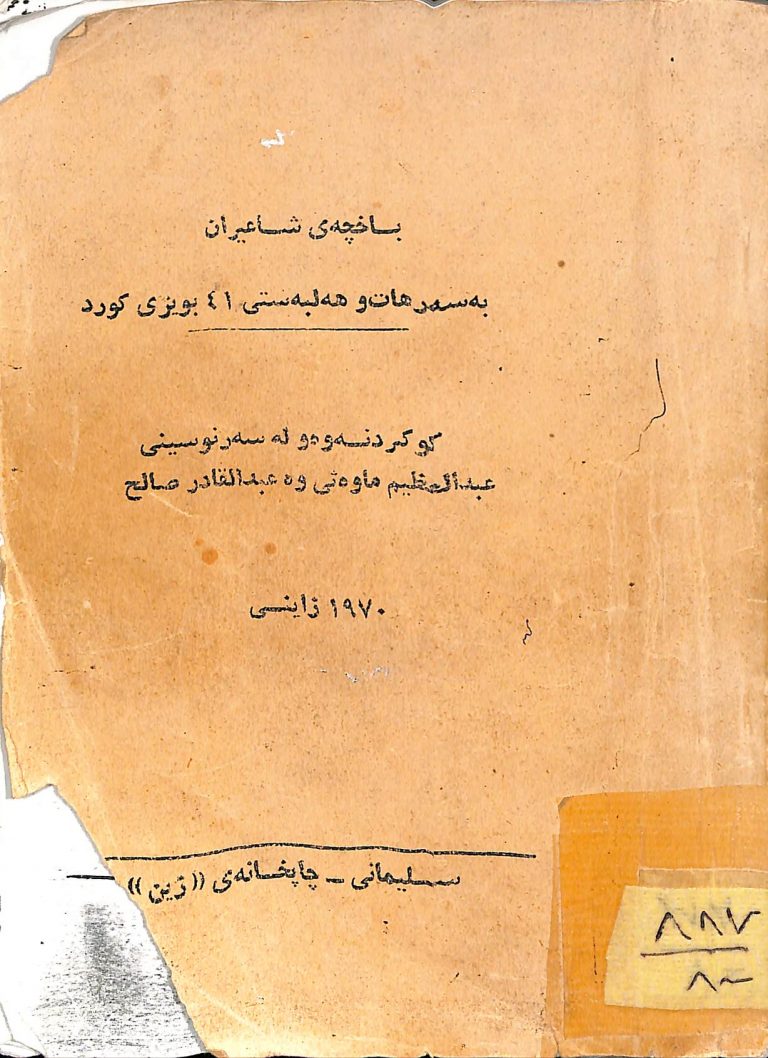 باخچەی شاعیران
بەسەرهات و هەلبەستی ٤١ بویژی کورد
کوکردنەوەو لە سەر نوسینی
عبدالعظیم ماوەتی وە عبدالقادر صالح
١٩٧٠ زاینی
سلیمانی ـ چاپخانەی «ژین»
٨٨٧